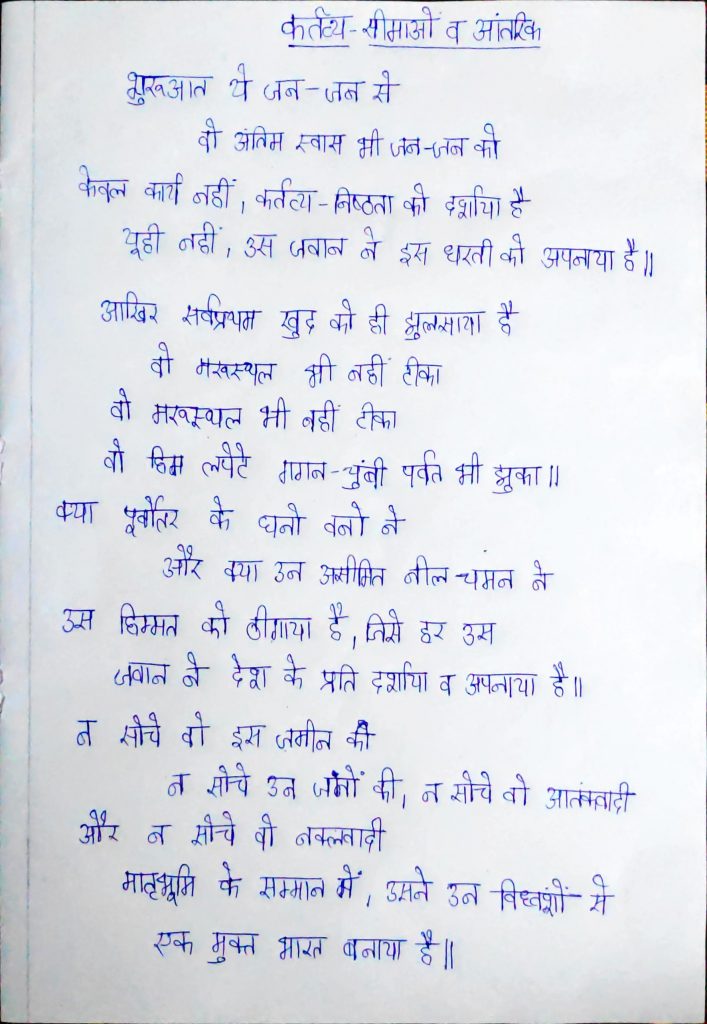 कर्तव्य-सीमाओं व आंतरिक
शुरूआत ये जन-जन से
वो अंतिम स्वास भी जन-जन को
केवल कार्य नहीं, कर्तव्य-निष्ठता को दर्शाया है
यूही नहीं, उस जवान ने इस धरती को अपनाया है॥
आखिर सर्वप्रथम खुद को ही झुलसाया है
वो मरूस्थल भी नहीं टीका
वो मरूस्थल भी नहीं टीका
वो हिम लपेटे गगन-चुंबी पर्वत भी झुका॥
क्या पूर्वोतर के घनो वनो ने
और क्या उन असीमित नील-चमन ने
उस हिम्मत को डीगाया है, जिसे हर उस
जवान ने देश के प्रति दर्शाया व अपनाया है॥
न सोचे वो इस जमीन की
न सोचे उन जनों की, न सोचे वो आतंकवादी
और न सोचे वो नक्लवादी
मातृभूमि के सम्मान में, उसने उन विध्वंशों से
एक मुक्त भारत बनाया है॥